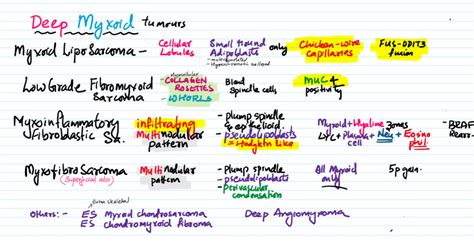 Deep Myxoid tumours
Myxoid LipoSarcoma - Cellular Lobules Small round Adipoblasts only Chicken-wire Capillaries FUS-DDIT3 fusion
Low Grade Fibromyxoid Sarcoma - COLLAGEN ROSETTES - WHORLS Bland Spindle cells MUC4 positivity
Myxoinflammatory Fibroblastic Sa. infiltrating Multinodular pattern - plump spindle & epithelioid - pseudolipoblasts = Hodgkin like Myxoid + Hyaline zones LYC + Plasma + Neu + Eosino phil cell - BRAF Rearr.
Myxofibrosarcoma (Superficial also) Multinodular pattern - Plump spindle - pseudolipoblasts - Perivascular condensation All Myxoid only 5p gen.
Others:- ES Myxoid Chondrosarcoma Deep Angiomyxoma
ES Chondromyxoid fibroma